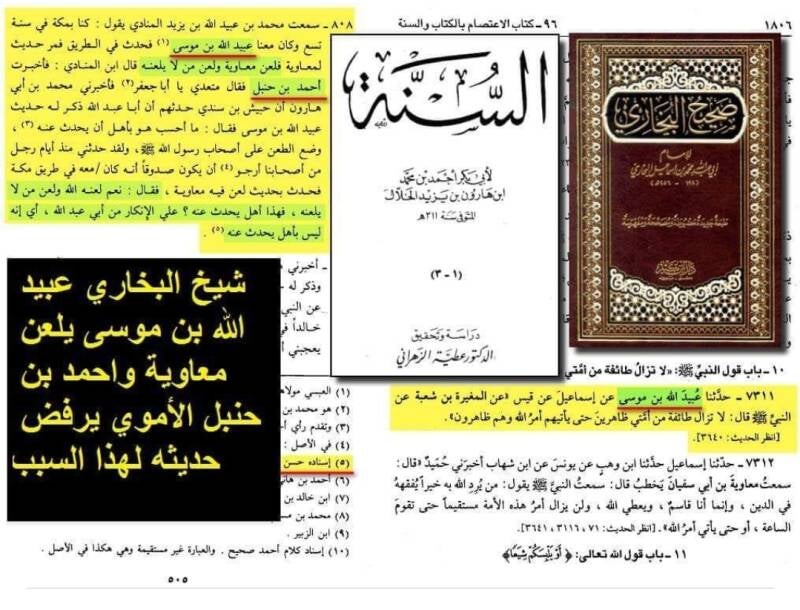 ٨٠٨ - سمعت محمد بن عبيد الله بن يزيد المنادي يقول : كنا بمكة في سنة
تسع وكان معنا عبيد الله بن موسى (١) فحدث في الطريق فمر حديث
لمعاوية فلعن معاوية ولعن من لا يلعنه قال ابن المنادي : فأخبرت
أحمد بن حنبل فقال متعدي يا أبا جعفر (٢) وأخبرني محمد بن أبي
هارون أن حبيش بن سندي حدثهم أن أبا عبد الله ذكر له حديث
عبيد الله بن موسى فقال : ما احسب هو بأهل أن يحدث عنه (٣) ،
وضع الطعن على أصحاب رسول الله ﷺ ، ولقد حدثني منذ أيام رجل
من أصحابنا أرجو (٤) أن يكون صدوقاً أنه كان / معه في طريق مكة
فحدث بحديث لعن فيه معاوية ، فقال : نعم لعنه الله ولعن من لا
يلعنه ، فهذا أهل يحدث عنه ؟ علي الإنكار من أبي عبد الله ، أي إنه
ليس بأهل يحدث عنه (٥) .
- أخبرني
وذكر له
عن النبي
خالداً في
يعجبني أ
(١) العبسي مولاهم
(٢) هو محمد بن
وتقدم رأي أ
(٤) في الأصل :
(٥) إسناده حسن
(٦) أحمد بن هاني
(٧) ابن خالد بن
(٨) محمد بن مس
(٩) ابن الزبير .
(١٠) إسناد كلام أحمد صحيح . والعبارة غير مستقيمة وهي هكذا في الأصل .
٥٠٥
شيخ البخاري عبيد
الله بن موسى يلعن
معاوية واحمد بن
حنبل الأموي يرفض
حديثه لهذا السبب
٩٦ - كتاب الاعتصام بالكتاب والسنة
١٨٠٦
السنة
لأبي بكر أحمد بن محمد
ابن هارون بن يزيد الخلال
المتوفى سنة ٣١١هـ
(١ - ٣)
دراسة وتحقيق
الدكتور عطية الزهراني
صحيح البخاري
للإمام
١٠ - باب قول النبي ﷺ: «لا تزال طائفة من أمتي
٧٣١١ - حدثنا عبيد الله بن موسى عن إسماعيل عن قيس «عن المغيرة بن شعبة عن
النبي ﷺ قال: لا تزال طائفة من أمتي ظاهرين حتى يأتيهم أمر الله وهم ظاهرون».
[انظر الحديث: ٣٦٤٠].
٧٣١٢ - حدثنا إسماعيل حدثنا ابن وهب عن يونس عن ابن شهاب أخبرني حُميد «قال:
سمعت معاوية بن أبي سفيان يخطب قال: سمعت النبي ﷺ يقول: من يُرد الله به خيراً يُفقهه
في الدين، وإنما أنا قاسم، ويعطي الله، ولن يزال أمر هذه الأمة مستقيماً حتى تقوم
الساعة ، أو حتى يأتي أمر الله». [انظر الحديث: ٧١ ، ٣١١٦ ، ٣٦٤١].
١١ - باب قول الله تعالى: ﴿ أَوْ يَلْبِسَكُمْ شِيَعًا﴾